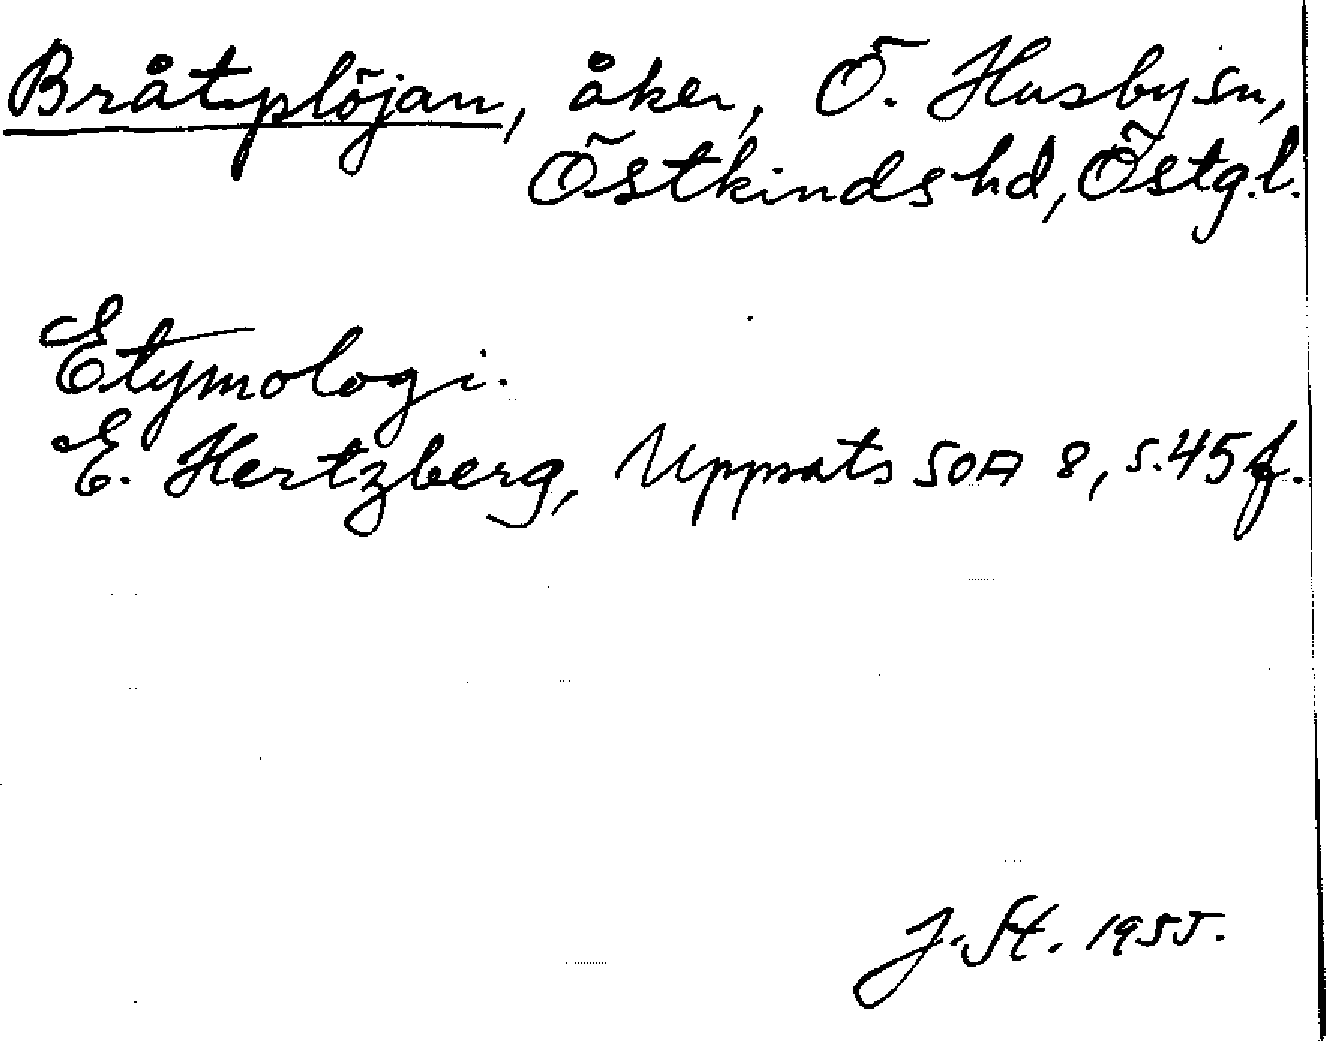 Bråtplöjan, åker, Ö. Husby sn,
Östkinds hd, Östg.l.
Etymologi.
E. Hertzberg, Uppsats SOA 8, s. 45 f.
J. St. 1955.